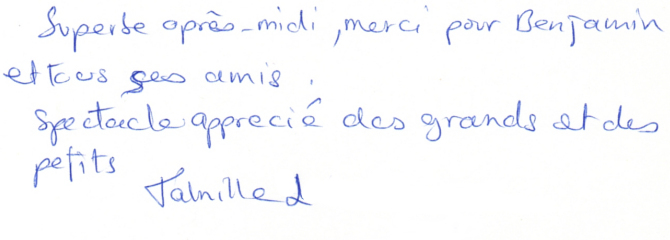 Superbe après-midi, merci pour Benjamin
et tous ses amis.
Spectacle apprecié des grands et des
petits